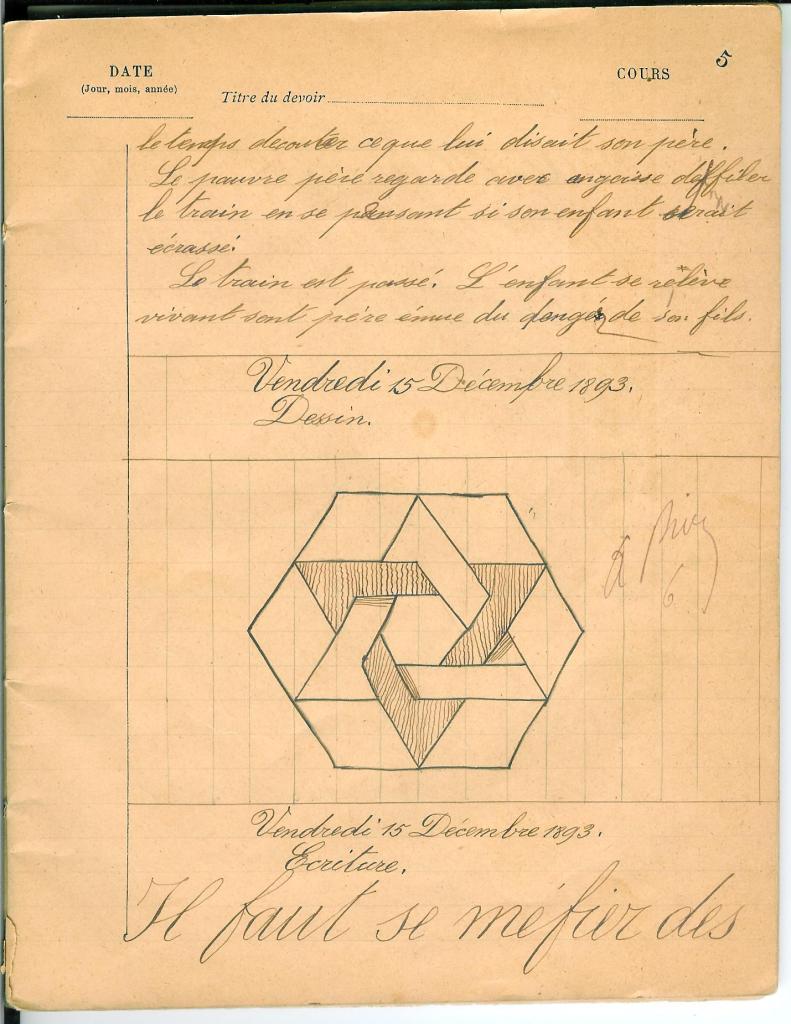 DATE
(Jour, mois, année)
Titre du devoir
COURS
5
le temps decouter ce que lui disait son père.
Le pauvre père regarde avec angoise défiler
le train en se pensant si son enfant serait
écrassé.
Le train est passé. L'enfant se relève
vivant sont père émue du danger de son fils.
Vendredi 15 Décembre 1893.
Dessin.
6
Vendredi 15 Décembre 1893.
Ecriture.
Il faut se méfier des